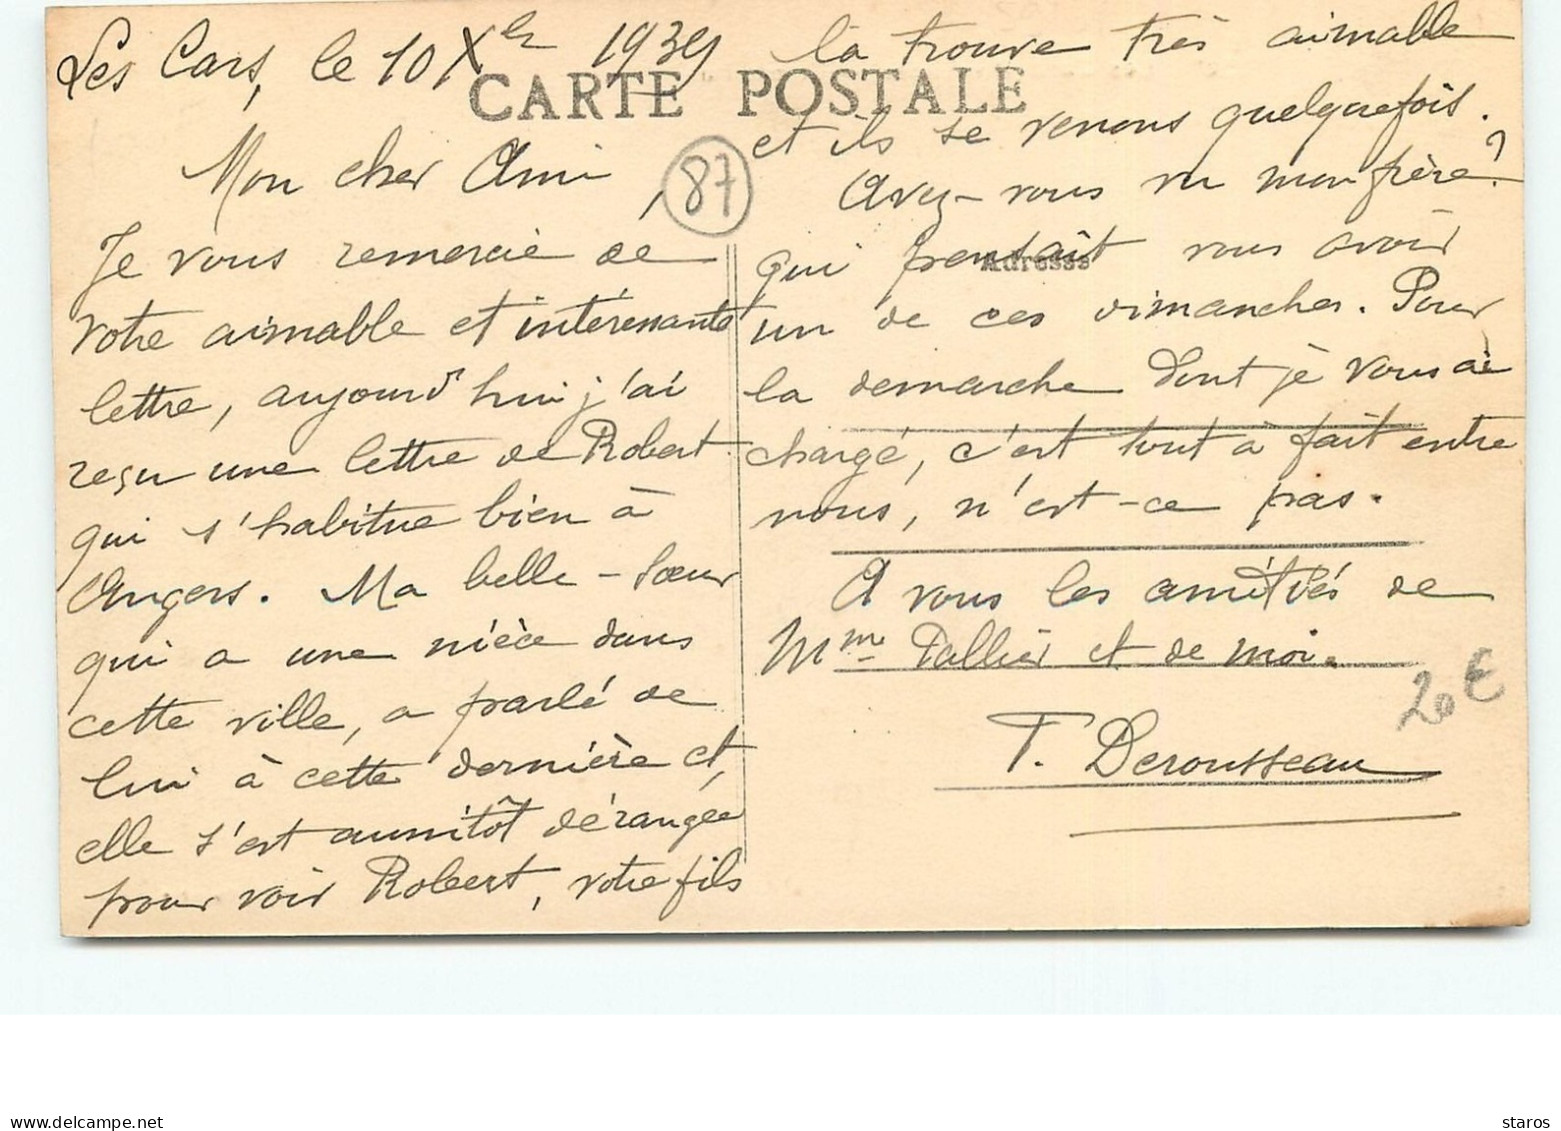 Les Cars, le 10 Xbre 1939
CARTE POSTALE
Mon cher Ami,
87
Je vous remercie de
votre aimable et intéressante
lettre, aujourd'hui j'ai
reçu une lettre de Robert
qui s'habitue bien à
Angers. Ma belle-sœur
qui a une nièce dans
cette ville, a parlé de
lui à cette dernière et,
elle s'est aussitôt dérangée
pour voir Robert, votre fils
la trouve très aimable
et ils se venons quelquefois.
Avez-vous vu mon frère?
Adresse
qui pensait vous avoir
un de ces dimanches. Pour
la démarche dont je vous ai
chargé, c'est tout à fait entre
nous, n'est-ce pas.
A vous les amitiés de
Mme Pallier et de moi.
20€
T. Derousseau
staros